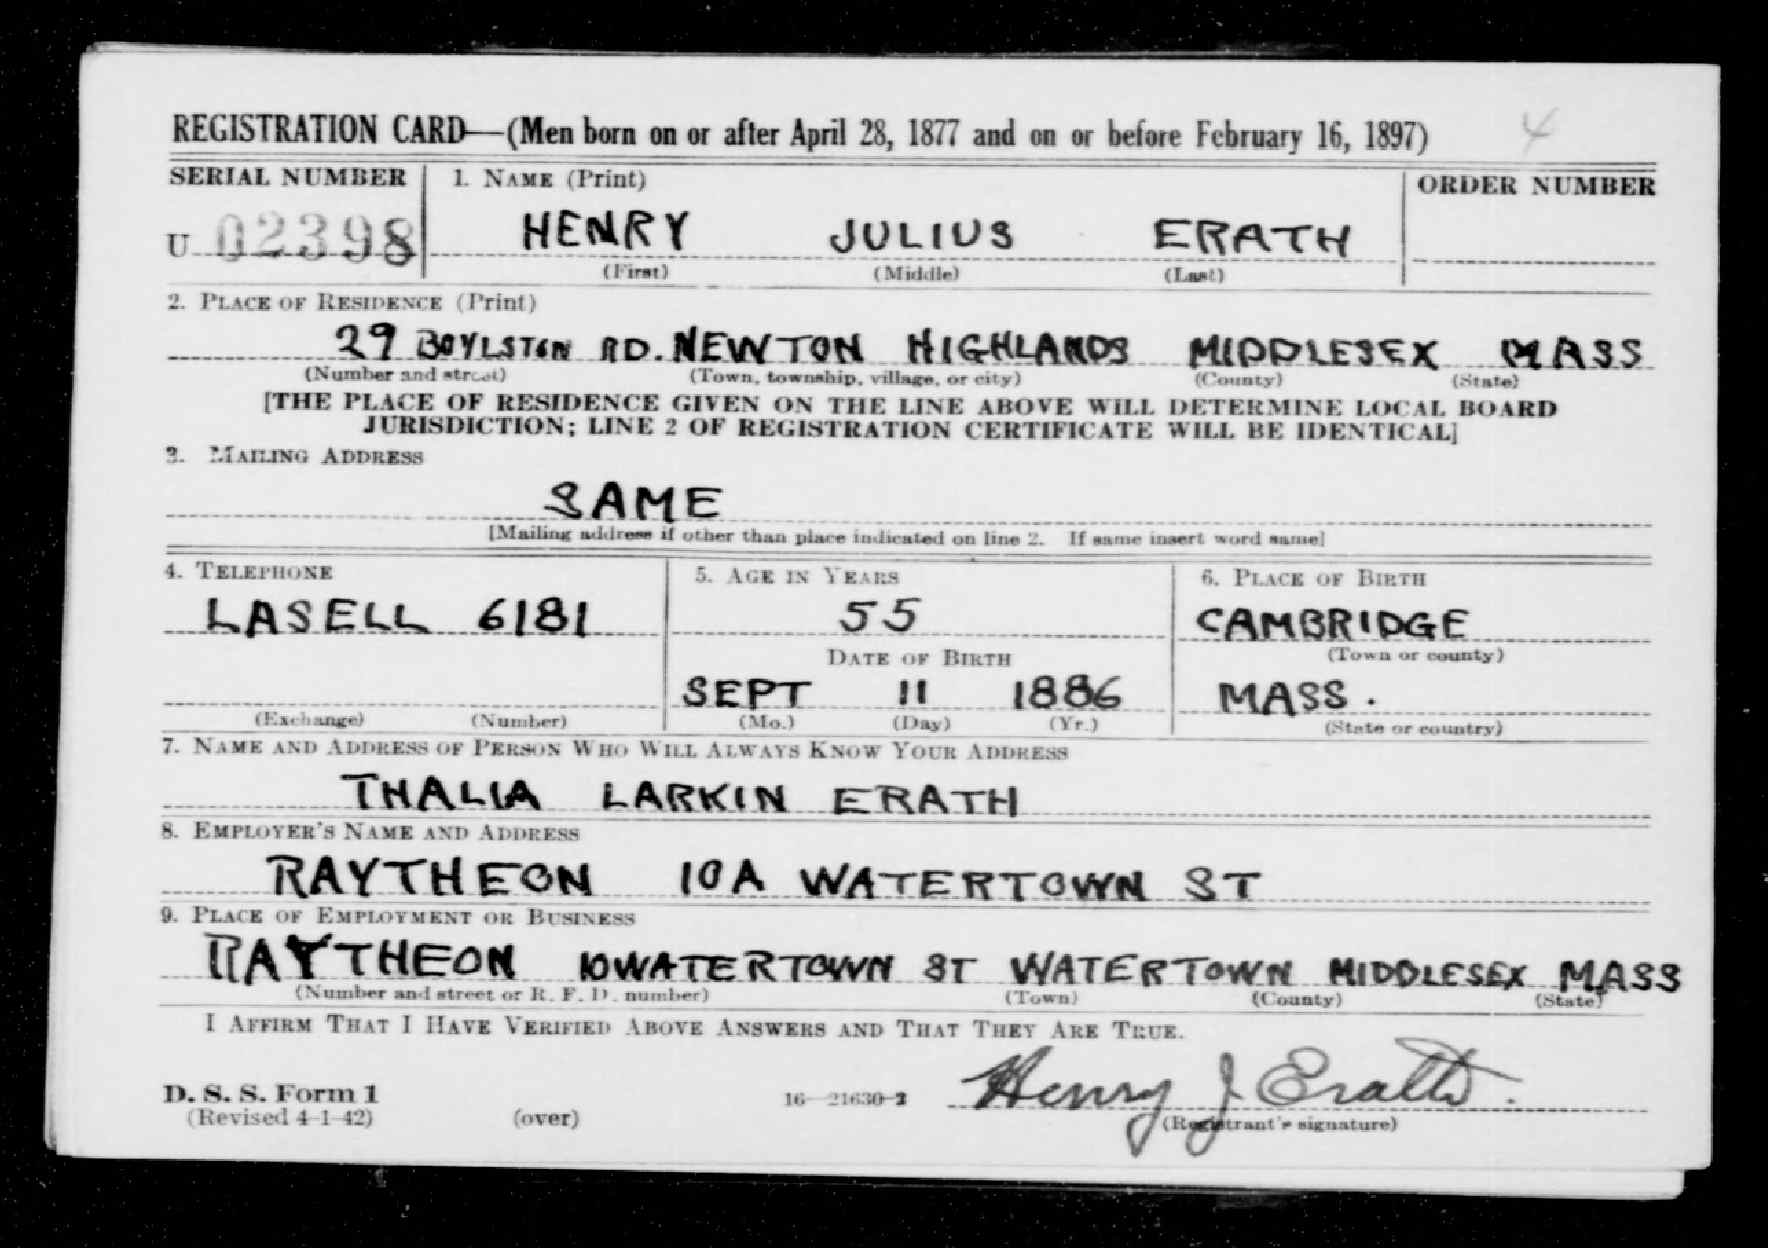 REGISTRATION CARD—(Men born on or after April 28, 1877 and on or before February 16, 1897) 4
SERIAL NUMBER 1. NAME (Print) ORDER NUMBER
U 02398 HENRY JULIUS ERATH
(First) (Middle) (Last)
2. PLACE OF RESIDENCE (Print)
29 BOYLSTON RD. NEWTON HIGHLANDS MIDDLESEX MASS
(Number and street) (Town, township, village, or city) (County) (State)
[THE PLACE OF RESIDENCE GIVEN ON THE LINE ABOVE WILL DETERMINE LOCAL BOARD
JURISDICTION; LINE 2 OF REGISTRATION CERTIFICATE WILL BE IDENTICAL]
3. MAILING ADDRESS
SAME
[Mailing address if other than place indicated on line 2. If same insert word same]
4. TELEPHONE 5. AGE IN YEARS 6. PLACE OF BIRTH
LASELL 6181 55 CAMBRIDGE
DATE OF BIRTH (Town or county)
SEPT 11 1886 MASS.
(Exchange) (Number) (Mo.) (Day) (Yr.) (State or country)
7. NAME AND ADDRESS OF PERSON WHO WILL ALWAYS KNOW YOUR ADDRESS
THALIA LARKIN ERATH
8. EMPLOYER'S NAME AND ADDRESS
RAYTHEON 10A WATERTOWN ST
9. PLACE OF EMPLOYMENT OR BUSINESS
RAYTHEON 10 WATERTOWN ST WATERTOWN MIDDLESEX MASS
(Number and street or R. F. D. number) (Town) (County) (State)
I AFFIRM THAT I HAVE VERIFIED ABOVE ANSWERS AND THAT THEY ARE TRUE.
D. S. S. Form 1
(Revised 4-1-42) (over) 16—21630-2 Henry J Erath.
(Registrant's signature)